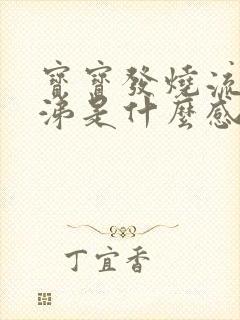 寶寶發燒流
涕是什麼感
丁宜香